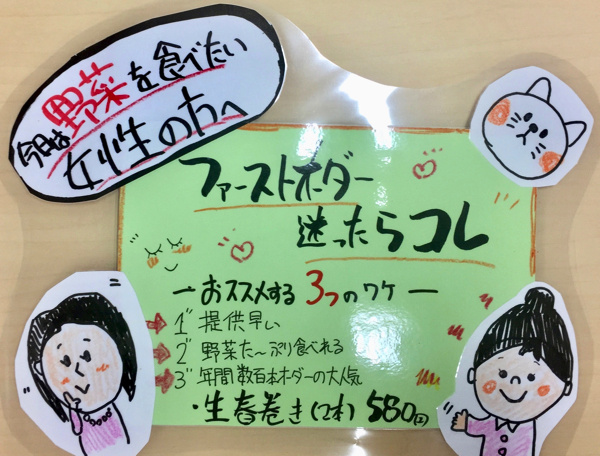 今日は野菜を食べたい
女性の方へ
ファーストオーダー
迷ったらコレ
ーおススメする3つのワケー
1 提供早い
2 野菜た〜ぷり食べれる
3 年間数百本オーダーの大人気
・生春巻き(2本) 580円